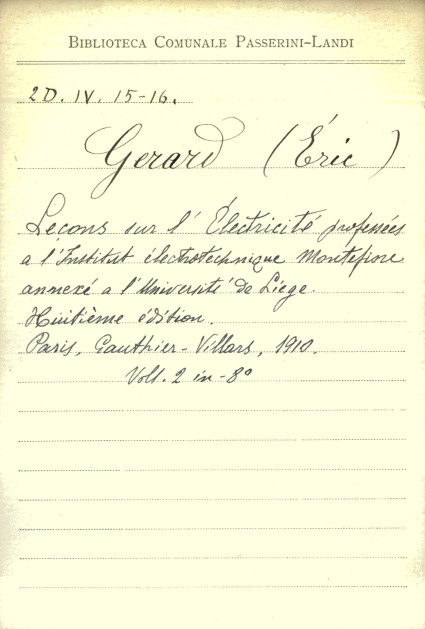 BIBLIOTECA COMUNALE PASSERINI-LANDI
2D. IV. 15-16.
Gerard (Éric)
Leçons sur l' Électricité professées
a l'Institut électrotechnique Montefiore
annexé a l'Université de Liege.
Huitième édition.
Paris, Gauthier-Villars, 1910.
Voll. 2 in-8°